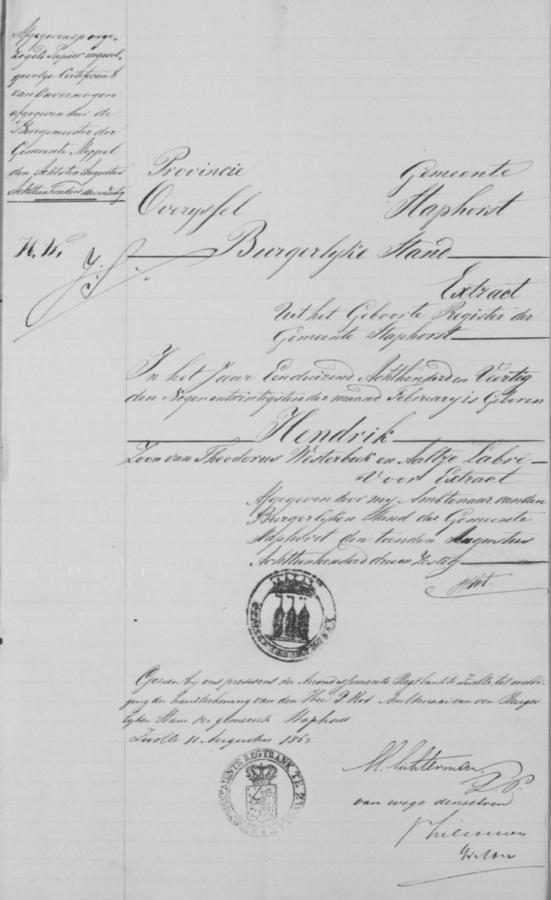 Afgegeven op onge-
zegeld Papier ingevol-
gevolge Certificaat
van Onvermogen
afgegeven door de
Burgemeester der
Gemeente Meppel
den Achtsten Augustus
Achttien honderd drie en zestig
Provincie
Overyssel
Gemeente
Staphorst
Burgerlyke Stand
Extract
Uit het Geboorte Register der
Gemeente Staphorst
In het Jaar Eenduizend Achthonderd en Veertig
den Negenentwintigsten der maand February is Geboren
Hendrik
Zoon van Theodorus Westerbeek en Aaltje Labri
Voor Extract
Afgegeven door my Ambtenaar van den
Burgerlyken Stand der Gemeente
Staphorst den tienden Augustus
Achttienhonderd drie en Zestig
Gezien by ons president der Arrondissements Regtbank te Zwolle, tot
ging der handteekening van den Heer Ambtenaar van den Burger
lyken Stand der gemeente Staphorst
Zwolle 11 Augustus 1863
ARRONDISSEMENTS REGTBANK TE ZWOLLE
van wege denzelven